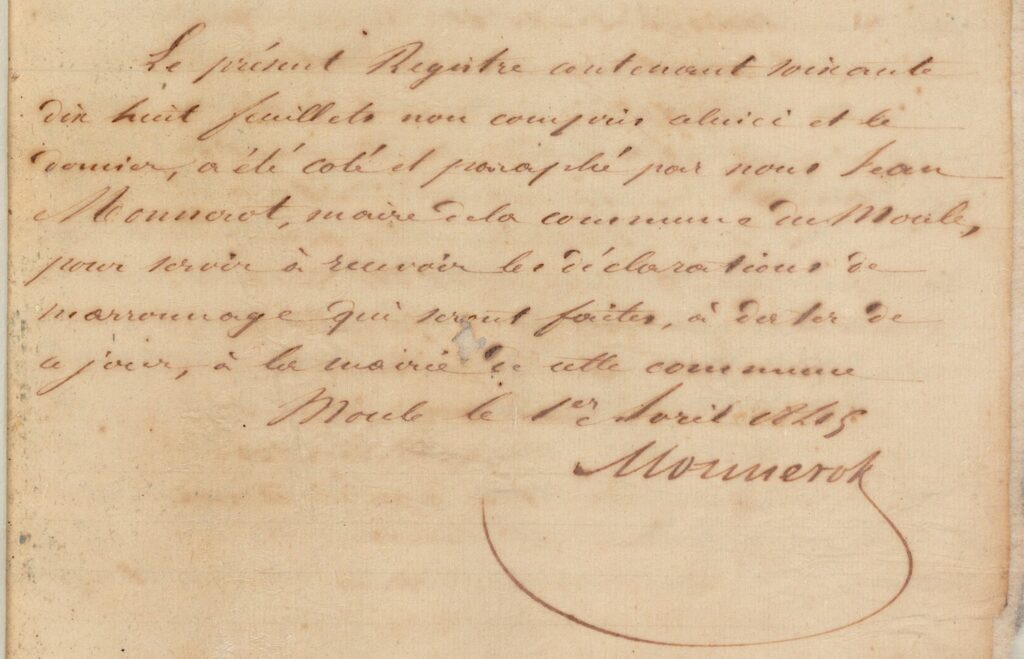 Le présent Registre contenant soixante
dix huit feuillets non compris celui ci et le
dernier, a été coté et paraphé par nous Jean
Monnerot, maire de la commune du Moule,
pour servir à recevoir les déclarations de
marronnage qui seront faites, à dater de
ce jour, à la mairie de cette commune
Moule le 1er Avril 1845
Monnerot